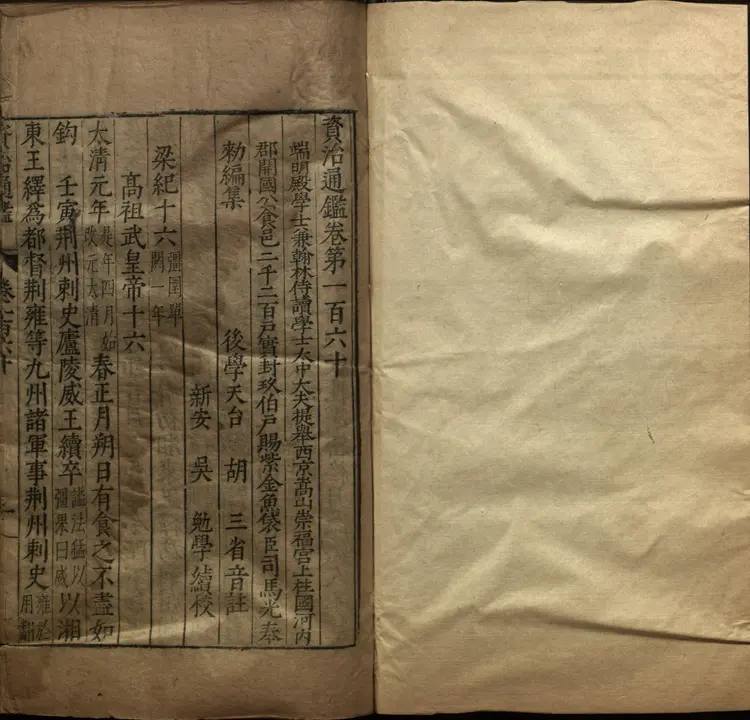 資治通鑑卷第一百六十
端明殿學士兼翰林侍讀學士太中大夫提舉西京嵩山崇福宮上柱國河内
郡開國公食邑二千二百戶實封玖伯戶賜紫金魚袋臣司馬光奉
勑編集
後學天台胡三省音註
新安吳勉學續校
梁紀十六彊圉單閼一年
高祖武皇帝十六
太清元年是年四月始改元太清春正月朔日有食之不盡如
鈎壬寅荆州刺史廬陵威王續卒謚法猛以彊果曰威以湘
東王繹爲都督荆雍等九州諸軍事荆州刺史雍於用翻
資治通鑑
卷一百六十
一